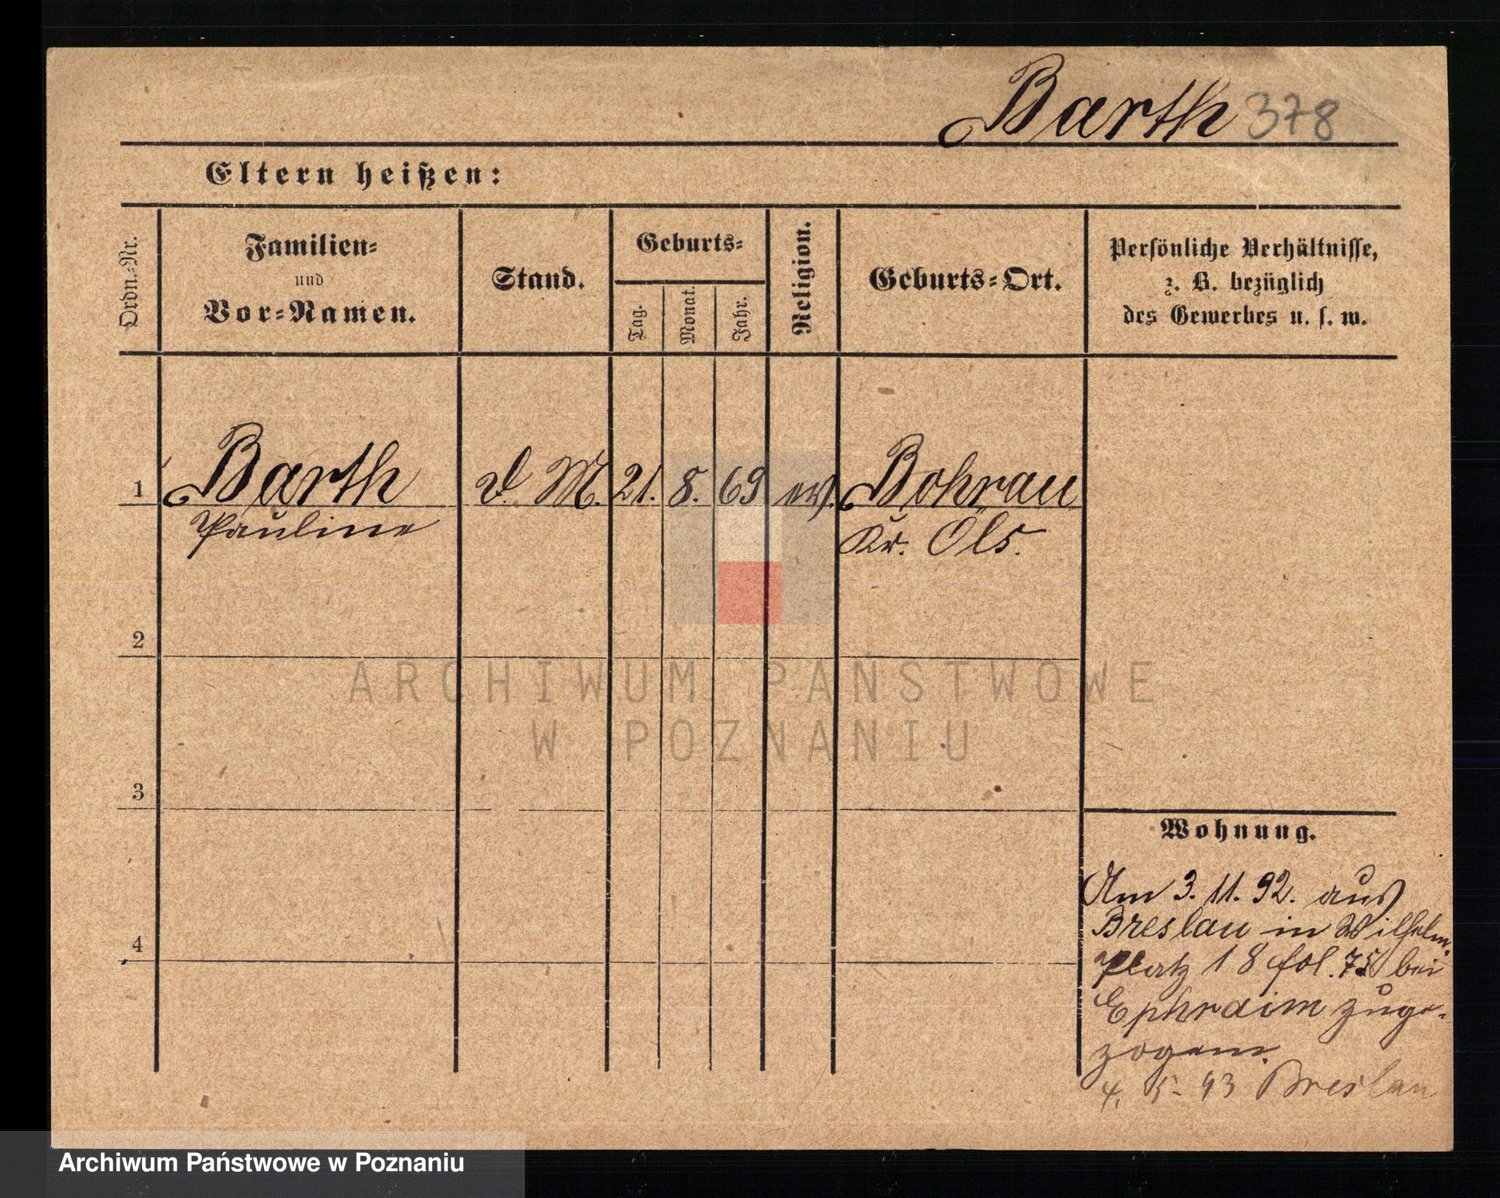 Barth 378
Eltern heißen:
Ordn.-Nr.
Familien-
und
Vor-Namen.
Stand.
Geburts-
Tag.
Monat.
Jahr.
Religion.
Geburts-Ort.
Persönliche Verhältnisse,
z. B. bezüglich
des Gewerbes u. s. w.
1 Barth D. M. 21. 8. 69 ev. Bohrau
Pauline Kr. Öls.
2
ARCHIWUM PAŃSTWOWE
W POZNANIU
3
Wohnung.
4
Am 3. 11. 92. aus
Breslau in Wilhelm-
platz 18 fol. 75 bei
Ephraim zuge-
zogen.
4. 5. 93 Breslau
Archiwum Państwowe w Poznaniu